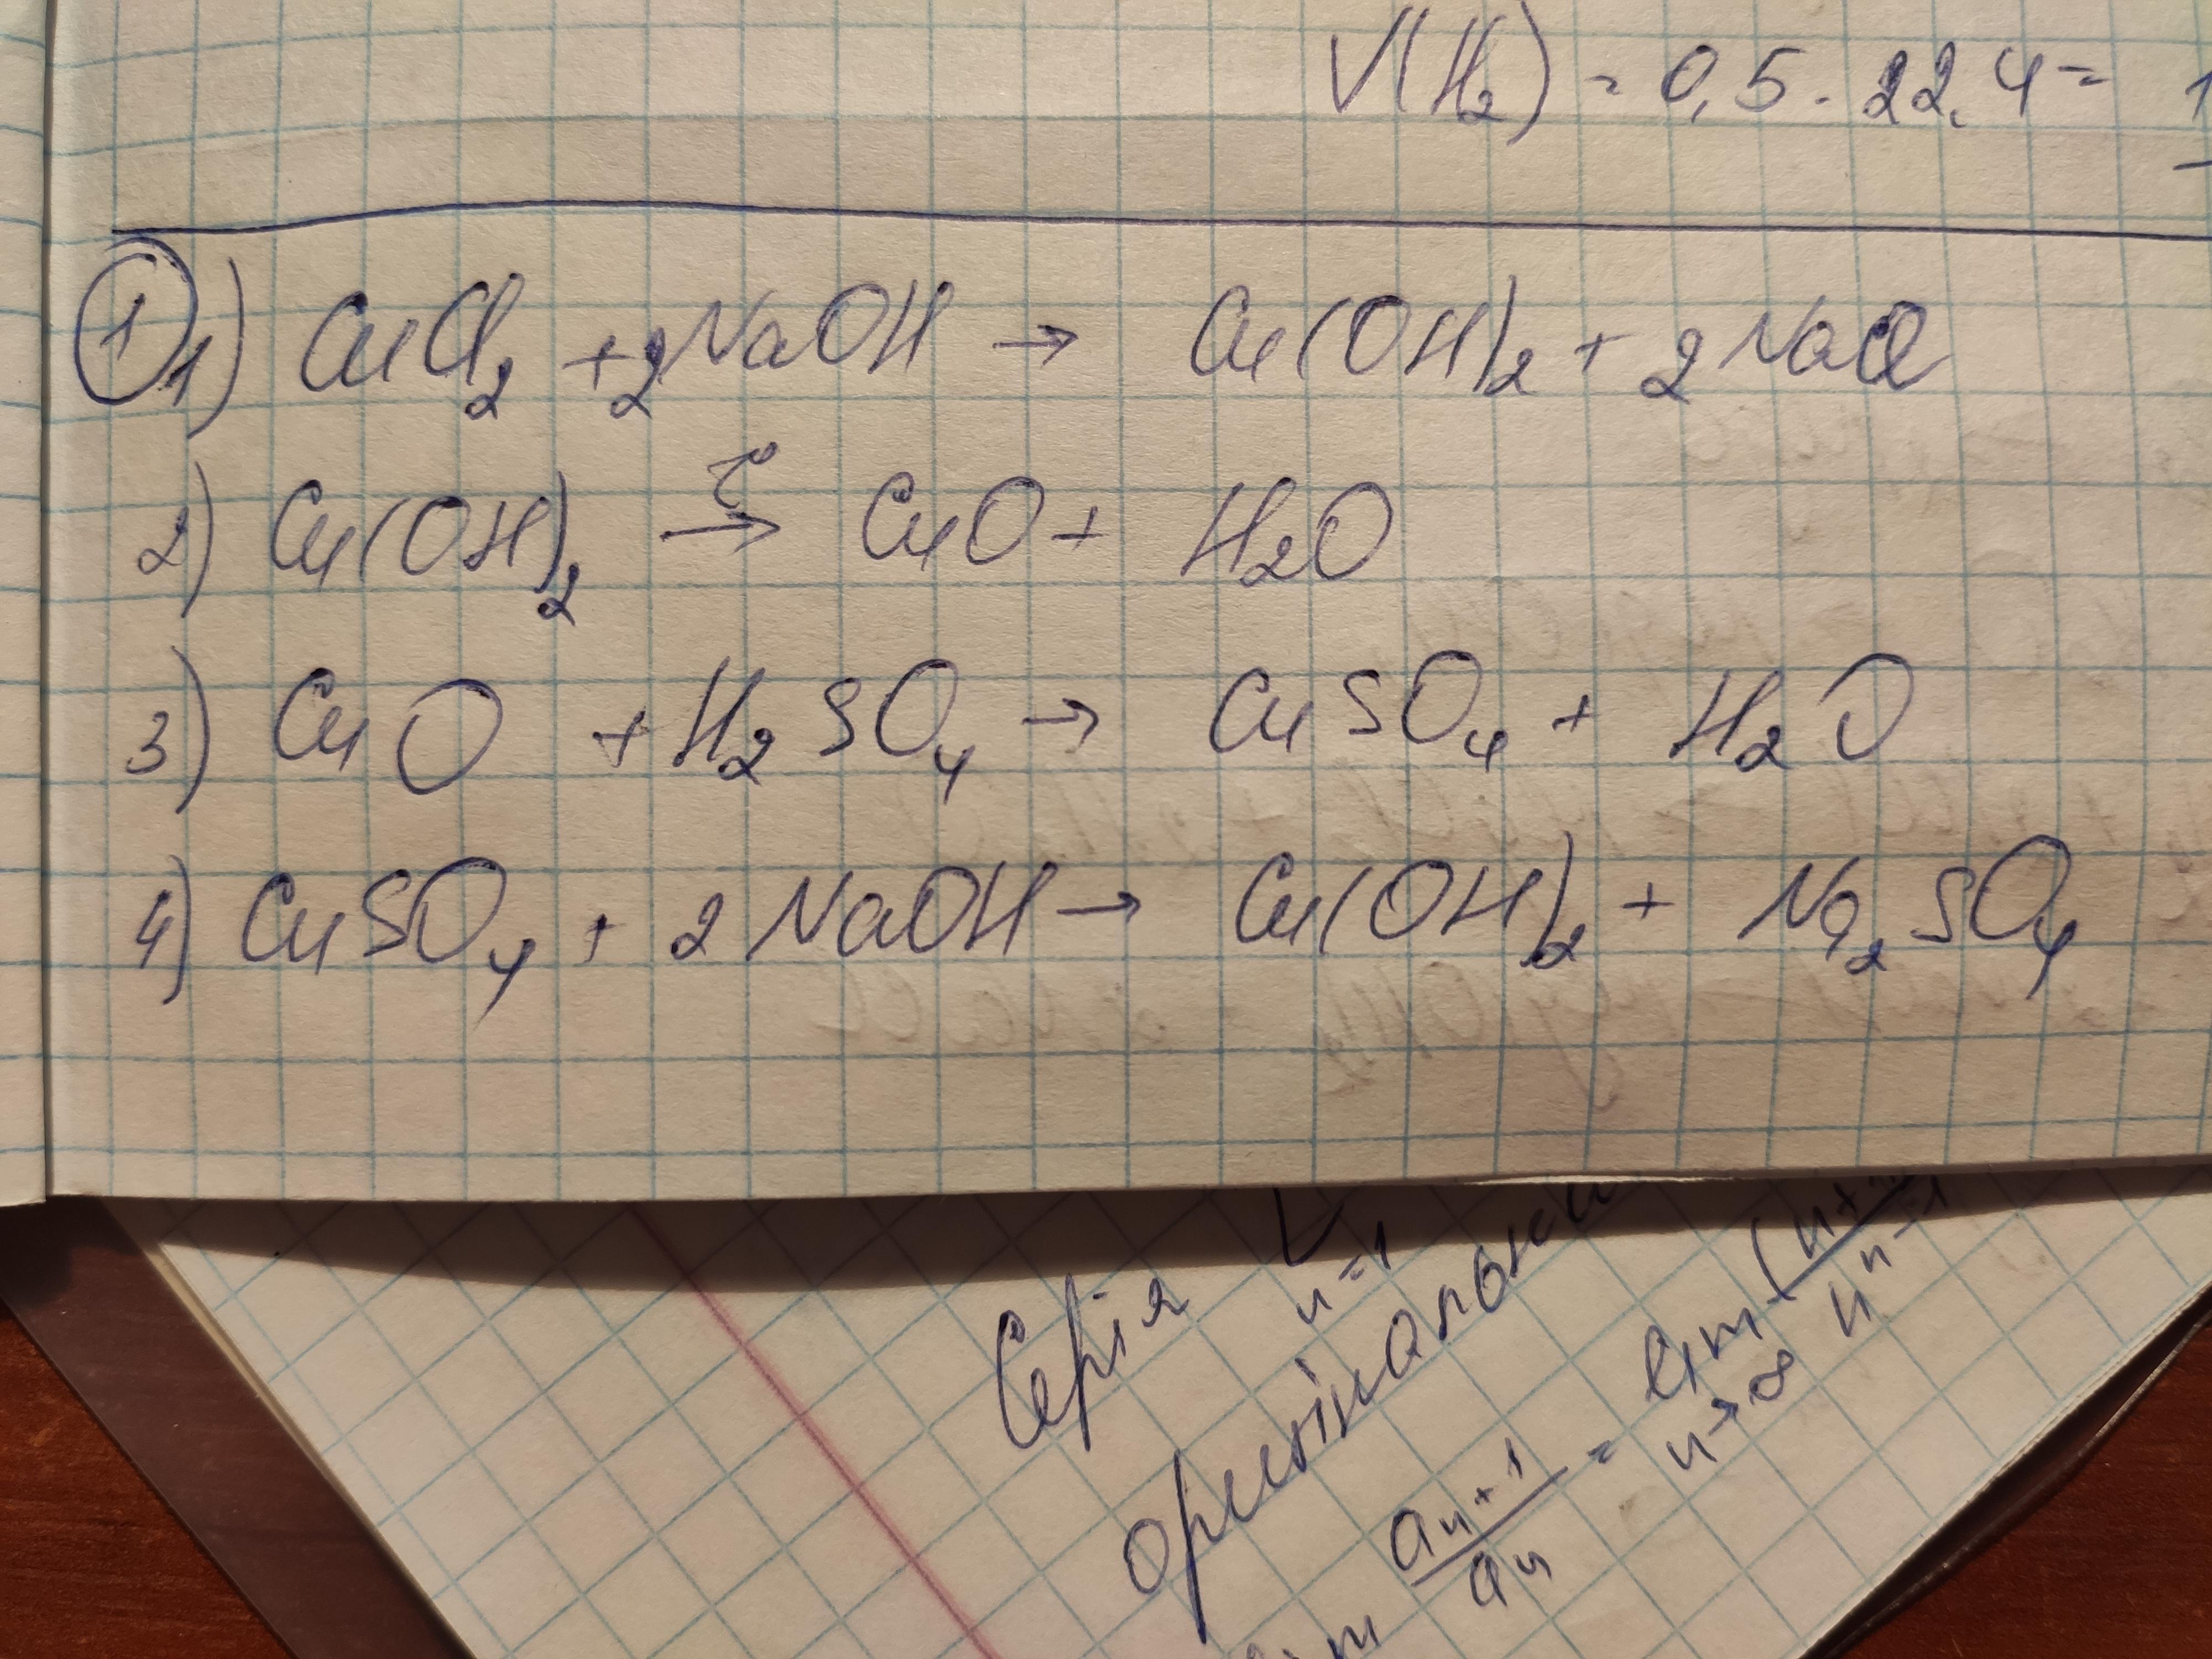 V(H₂) = 0,5 · 22,4 =
① 1) CuCl₂ + 2NaOH → Cu(OH)₂ + 2NaCl
2) Cu(OH)₂ →(t°) CuO + H₂O
3) CuO + H₂SO₄ → CuSO₄ + H₂O
4) CuSO₄ + 2NaOH → Cu(OH)₂ + Na₂SO₄
n=1
Серія
aₙ₊₁/aₙ = lim n→∞